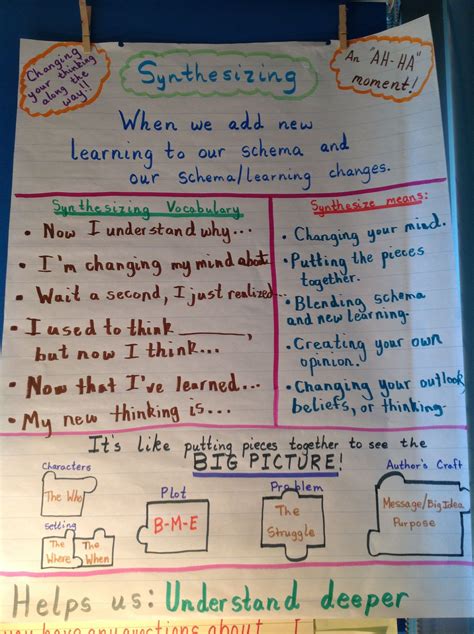 Changing
your thinking
along the
way!!
Synthesizing
An "AH-HA"
moment!
When we add new
learning to our schema and
our schema/learning changes.
Synthesizing Vocabulary
• Now I understand why...
• I'm changing my mind about
• Wait a second, I just realized...
• I used to think ______,
but now I think...
• Now that I've learned...
• My new thinking is...
Synthesize means:
• Changing your mind.
• Putting the pieces
together.
• Blending schema
and new learning.
• Creating your own
opinion.
• Changing your outlook,
beliefs, or thinking.
It's like putting pieces together to see the
BIG PICTURE!
Characters
The Who
setting
The
Where
The
When
Plot
B-M-E
Problem
The
Struggle
Author's Craft
Message/Big Idea
Purpose
Helps us: Understand deeper
you have any questions about